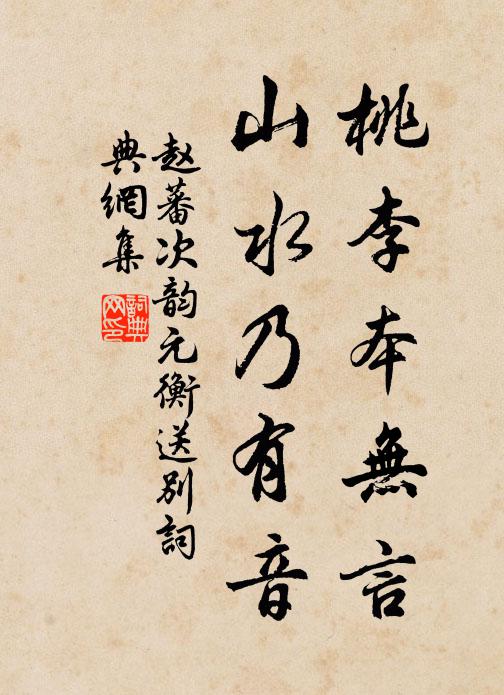 桃李本無言
山水乃有音
赵蕃次韵元衡送别詞
典網集
詞典
网印